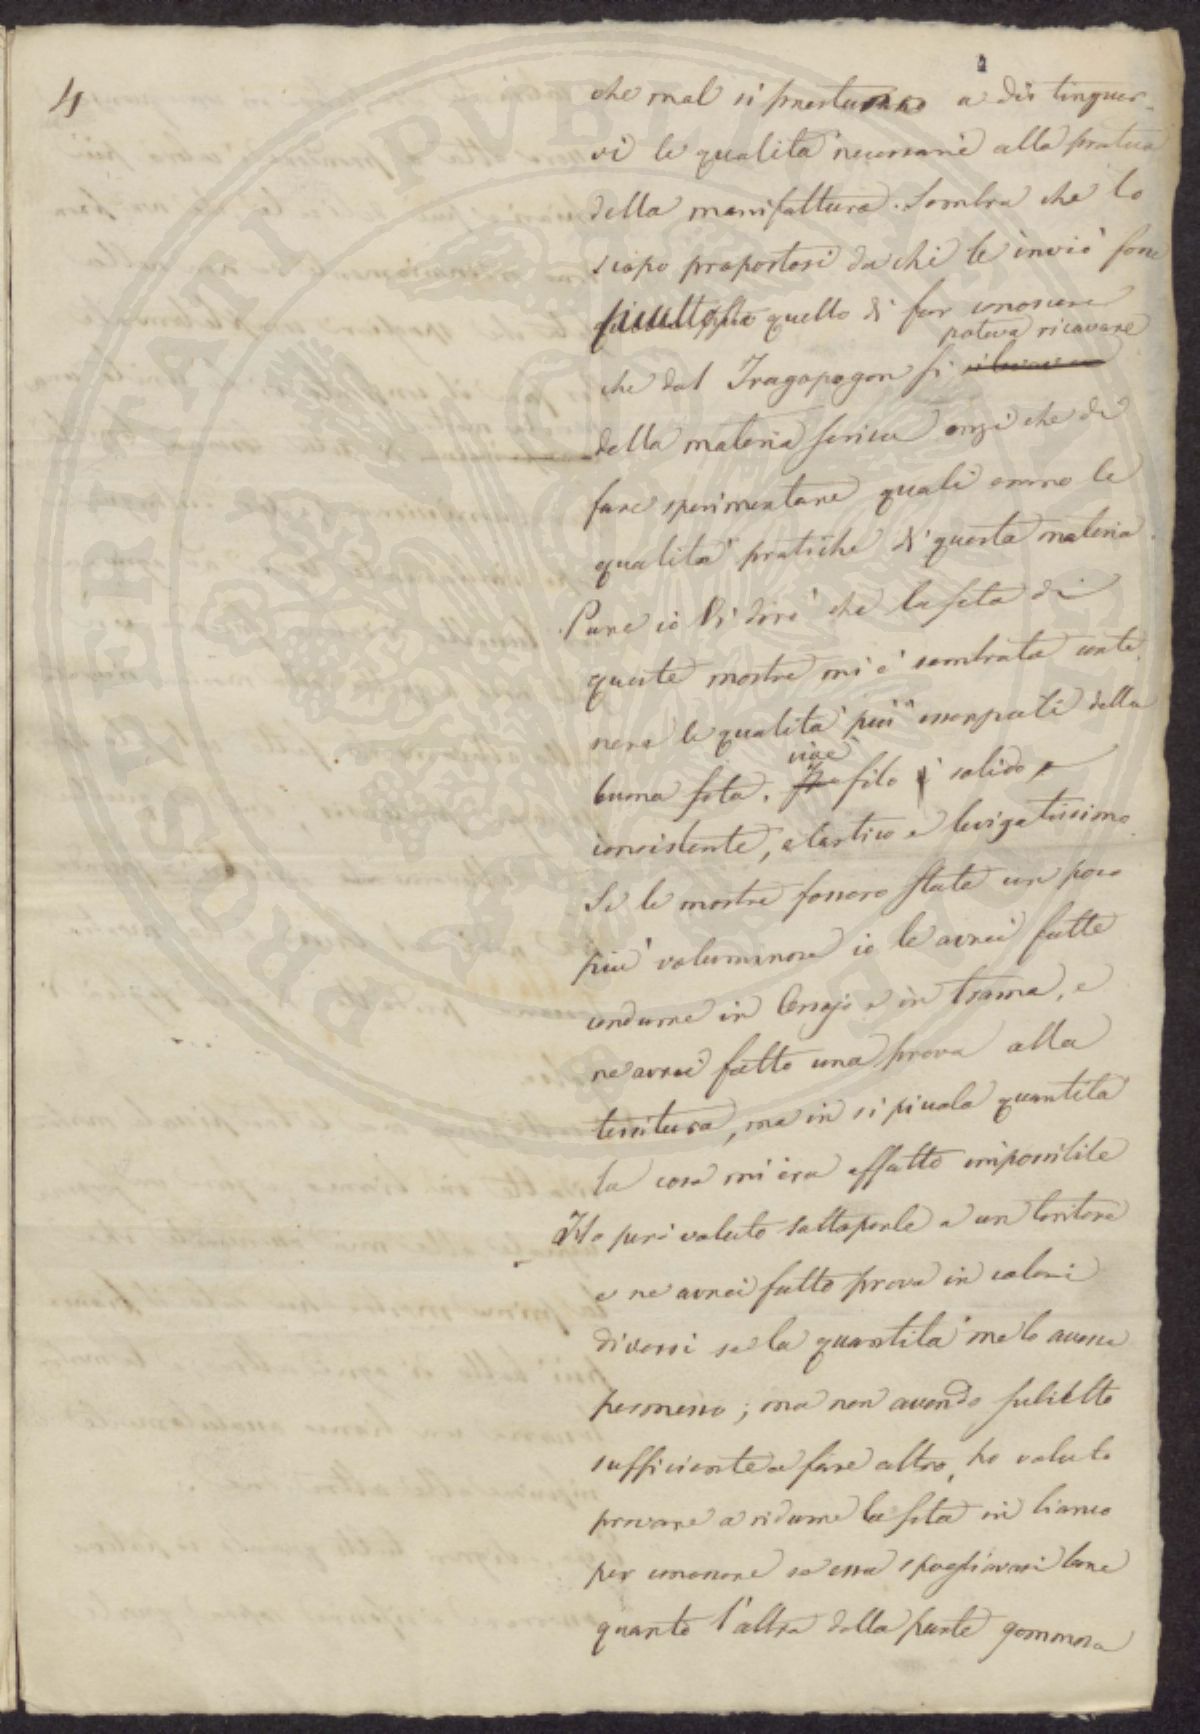 4
che mal si prestavano a distinguer-
vi le qualità necessarie alla pratica
della manifattura. Sembra che lo
scopo propostosi da chi le inviò fosse
piuttosto quello di far conoscere
poteva ricavare
che dal Tragopogon si
della materia serica anzi che di
fare sperimentare quali erano le
qualità pratiche di questa materia.
Pure io Vi dirò che la seta di
queste mostre mi è sembrata conte-
nere le qualità più essenziali della
cioè
buona seta, filo solido
consistente, elastico e levigatissimo.
Se le mostre fossero state un poco
più voluminose io le avrei fatte
condurre in Orsojo e in trama, e
ne avrei fatto una prova alla
tessitura, ma in sì piccola quantità
la cosa mi era affatto impossibile
Ho però voluto sottoporle a un tintore
e ne avrei fatto prova in colori
diversi se la quantità me lo avesse
permesso; ma non avendo subietto
sufficiente a fare altro, ho voluto
provare a ridurre la seta in bianco
per conoscere se essa spogliavasi bene
quanto l'altra dalla parte gommosa
PROSPERITATI PVBLICAE